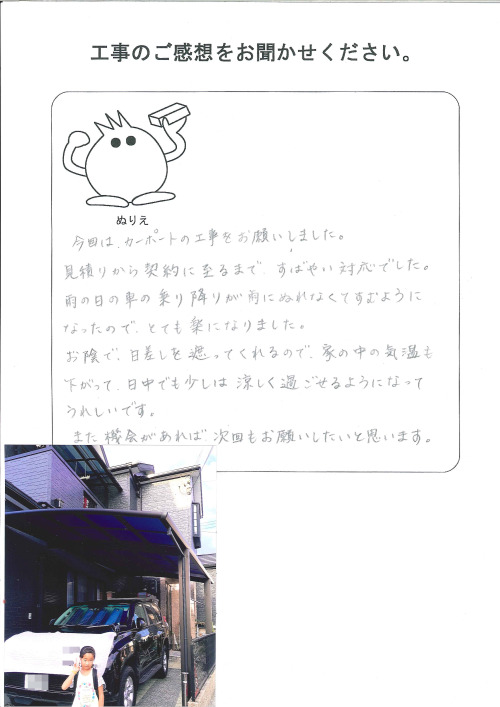 工事のご感想をお聞かせください。
ぬりえ
今回は、カーポートの工事をお願いしました。
見積りから契約に至るまで、すばやい対応でした。
雨の日の車の乗り降りが雨にぬれなくてすむように
なったので、とても楽になりました。
お陰で、日差しを遮ってくれるので、家の中の気温も
下がって、日中でも少しは涼しく過ごせるようになって
うれしいです。
また機会があれば、次回もお願いしたいと思います。